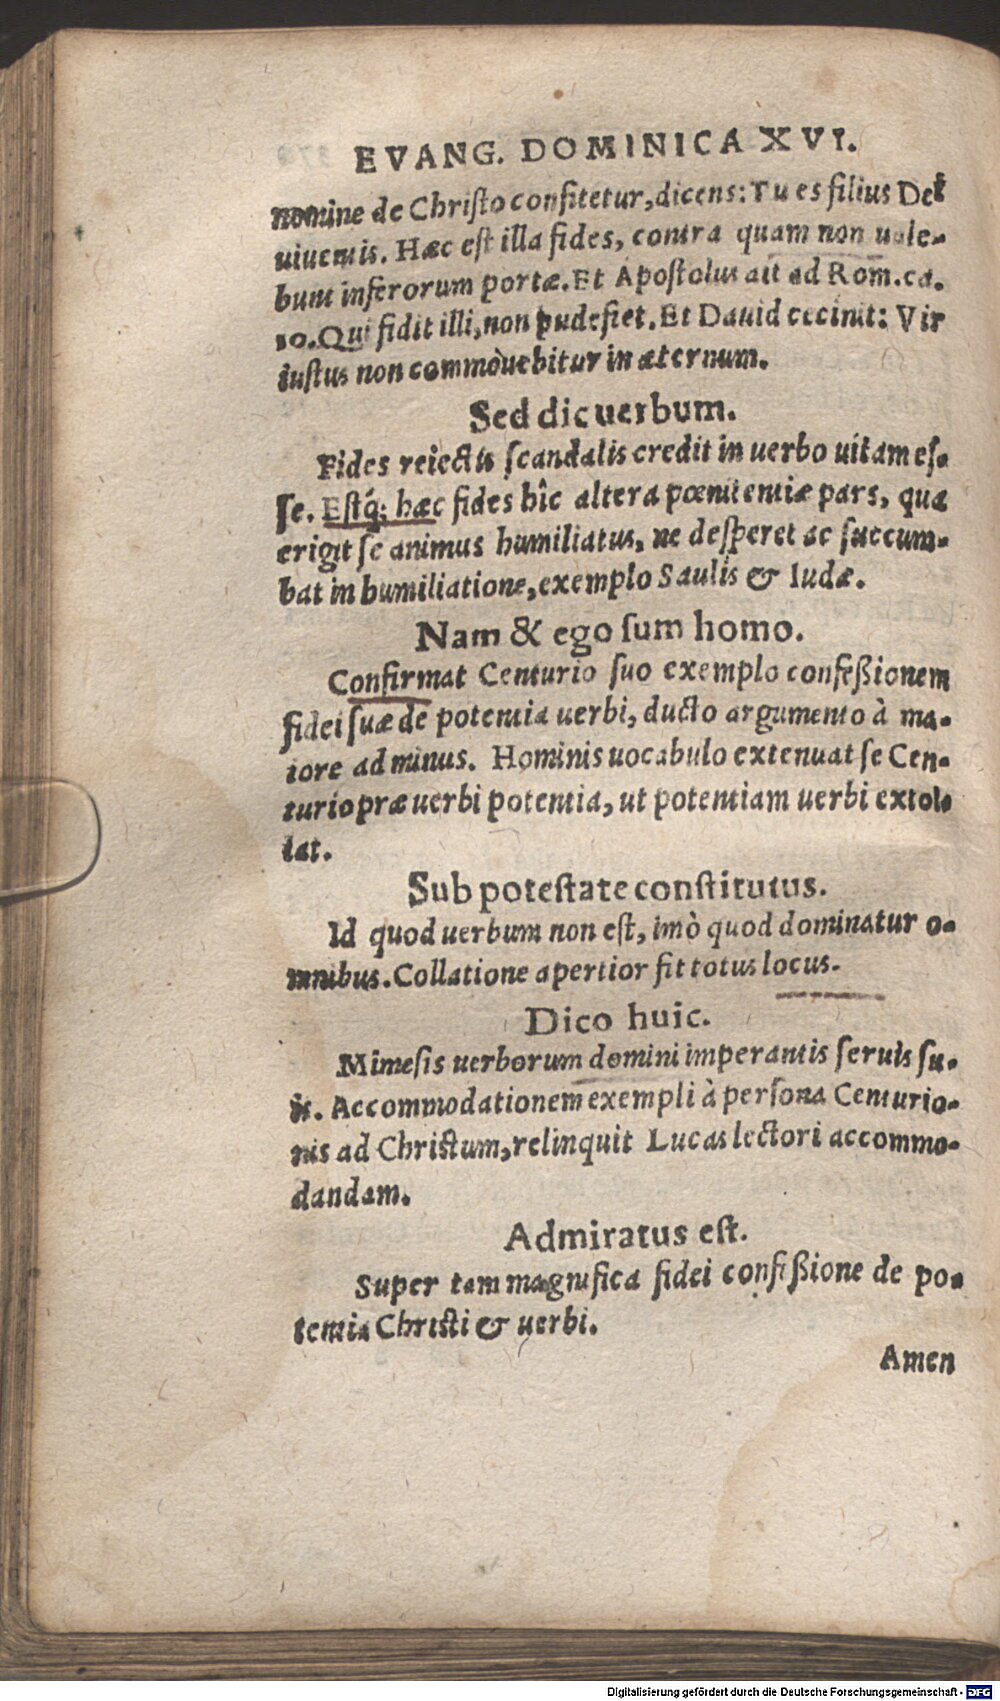 EVANG. DOMINICA XVI.
nomine de Christo confitetur, dicens: Tu es filius Dei
uiuentis. Hæc est illa fides, contra quam non uale-
bunt inferorum portæ. Et Apostolus ait ad Rom. ca.
10. Qui fidit illi, non pudefiet. Et Dauid cecinit: Vir
iustus non commòuebitur in æternum.
Sed dic uerbum.
Fides reiectis scandalis credit in uerbo uitam es-
se. Estq́; hæc fides hîc altera pœnitentiæ pars, qua
erigit se animus humiliatus, ne desperet ac succum-
bat in humiliatione, exemplo Saulis & Iudæ.
Nam & ego sum homo.
Confirmat Centurio suo exemplo confeßionem
fidei suæ de potentia uerbi, ducto argumento à ma-
iore ad minus. Hominis uocabulo extenuat se Cen-
turio præ uerbi potentia, ut potentiam uerbi extol-
lat.
Sub potestate constitutus.
Id quod uerbum non est, imò quod dominatur o-
mnibus. Collatione apertior fit totus locus.
Dico huic.
Mimesis uerborum domini imperantis seruis su-
is. Accommodationem exempli à persona Centurio-
nis ad Christum, relinquit Lucas lectori accommo-
dandam.
Admiratus est.
Super tam magnifica fidei confeßione de po-
tentia Christi & uerbi.
Amen
Digitalisierung gefördert durch die Deutsche Forschungsgemeinschaft - DFG